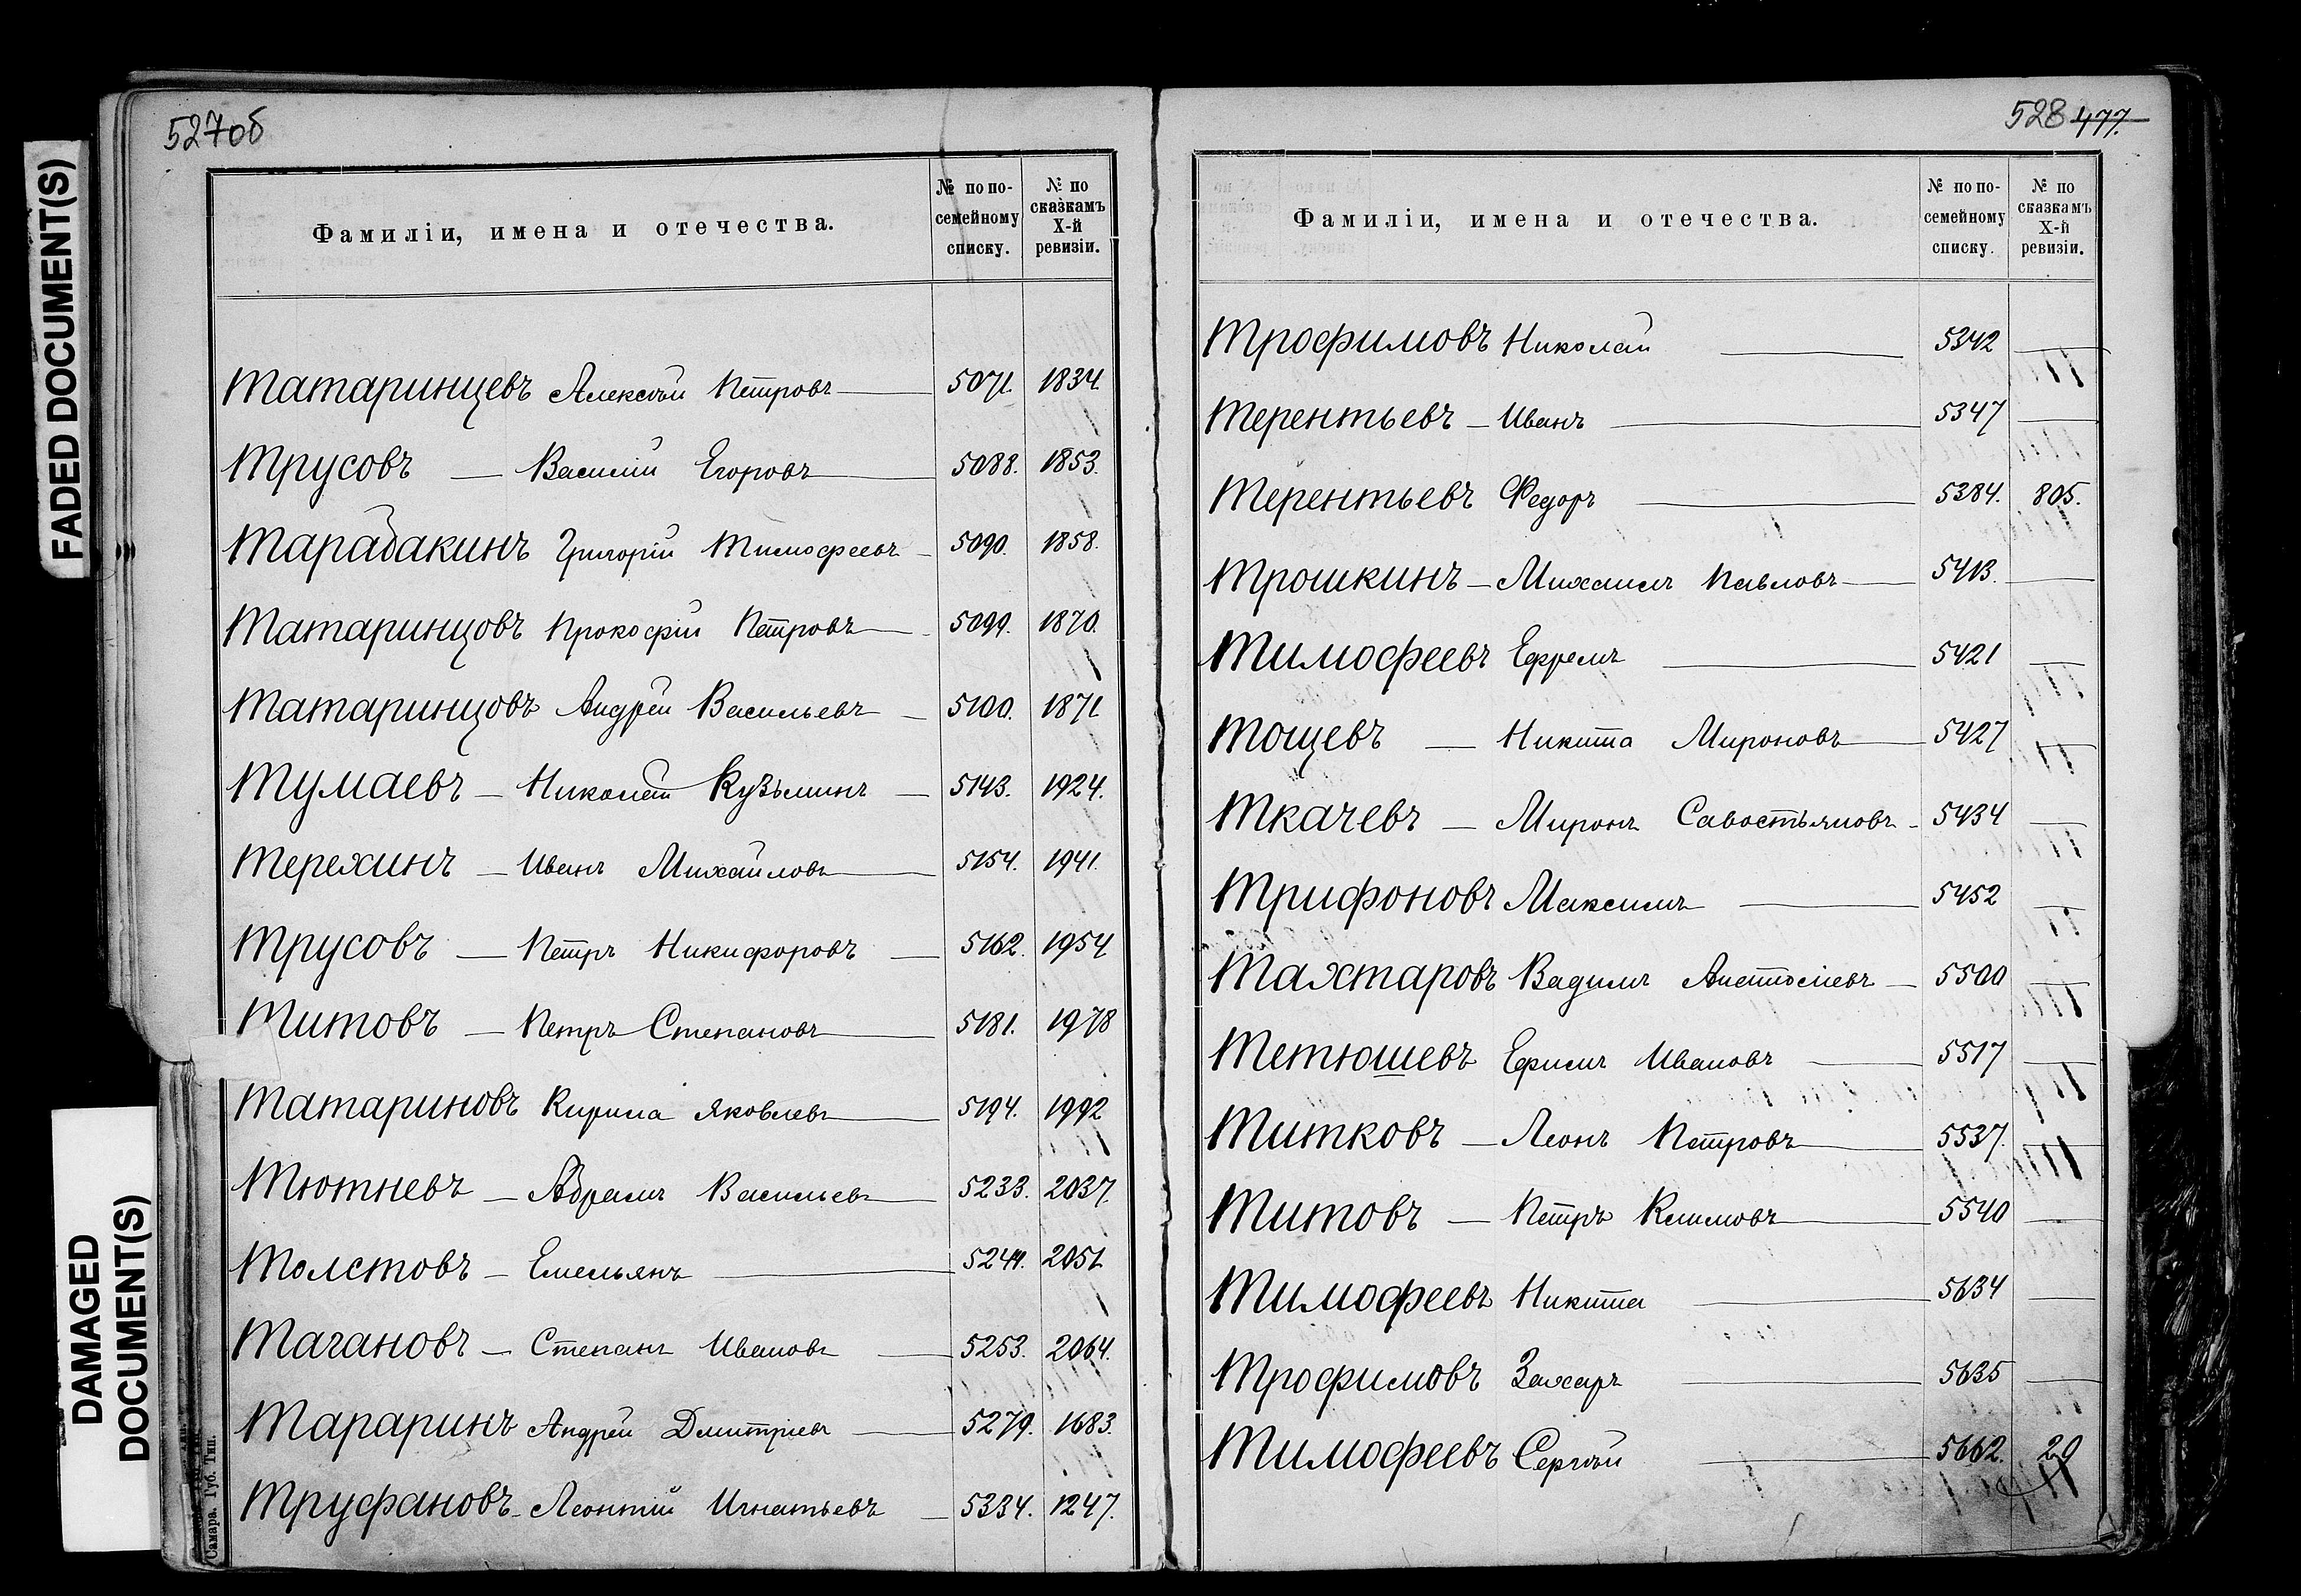 527об
Фамиліи, имена и отечества.
№ по по-
семейному
списку.
№ по
сказкамъ
X-й
ревизіи.
Татаринцевъ Алексѣй Петровъ 5071. 1834.
Трусовъ Василій Егоровъ 5088. 1853.
Тарабакинъ Григорій Тимофеевъ 5090. 1858.
Татаринцовъ Прокофій Петровъ 5099. 1870.
Татаринцовъ Андрей Васильевъ 5100. 1871
Тумаевъ Николай Кузьминъ 5143. 1924.
Терехинъ Иванъ Михайловъ 5154. 1941.
Трусовъ Петръ Никифоровъ 5162. 1954
Титовъ Петръ Степановъ 5181. 1978
Татариновъ Кирила Яковлевъ 5194. 1992
Тютневъ Абрамъ Васильевъ 5233. 2037.
Толстовъ Емельянъ 5244. 2051
Тагановъ Степанъ Ивановъ 5253. 2064.
Тараринъ Андрей Дмитріевъ 5279. 1683.
Труфановъ Леонтій Игнатьевъ 5334. 1247.
Самара. Губ. Тип.
528 477.
Фамиліи, имена и отечества.
№ по по-
семейному
списку.
№ по
сказкамъ
X-й
ревизіи.
Трофимовъ Николай 5342
Терентьевъ Иванъ 5347
Терентьевъ Федоръ 5384. 805.
Трошкинъ Михаилъ Павловъ 5413.
Тимофеевъ Ефремъ 5421
Тощевъ Никита Мироновъ 5427
Ткачевъ Миронъ Савостьяновъ 5434
Трифоновъ Максимъ 5452
Тахтаровъ Вадимъ 5500
Тетюшевъ Ефимъ Ивановъ 5517
Титковъ Леонъ Петровъ 5537.
Титовъ Петръ Климовъ 5540
Тимофеевъ Никита 5634
Трофимовъ Захаръ 5635
Тимофеевъ Сергѣй 5662. 20
FADED DOCUMENT(S)
DAMAGED
DOCUMENT(S)